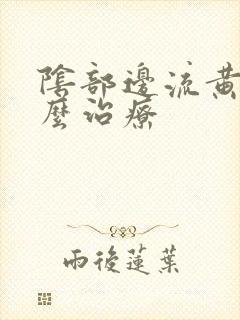 陰部邊流黃
麼治療
雨後蓮葉